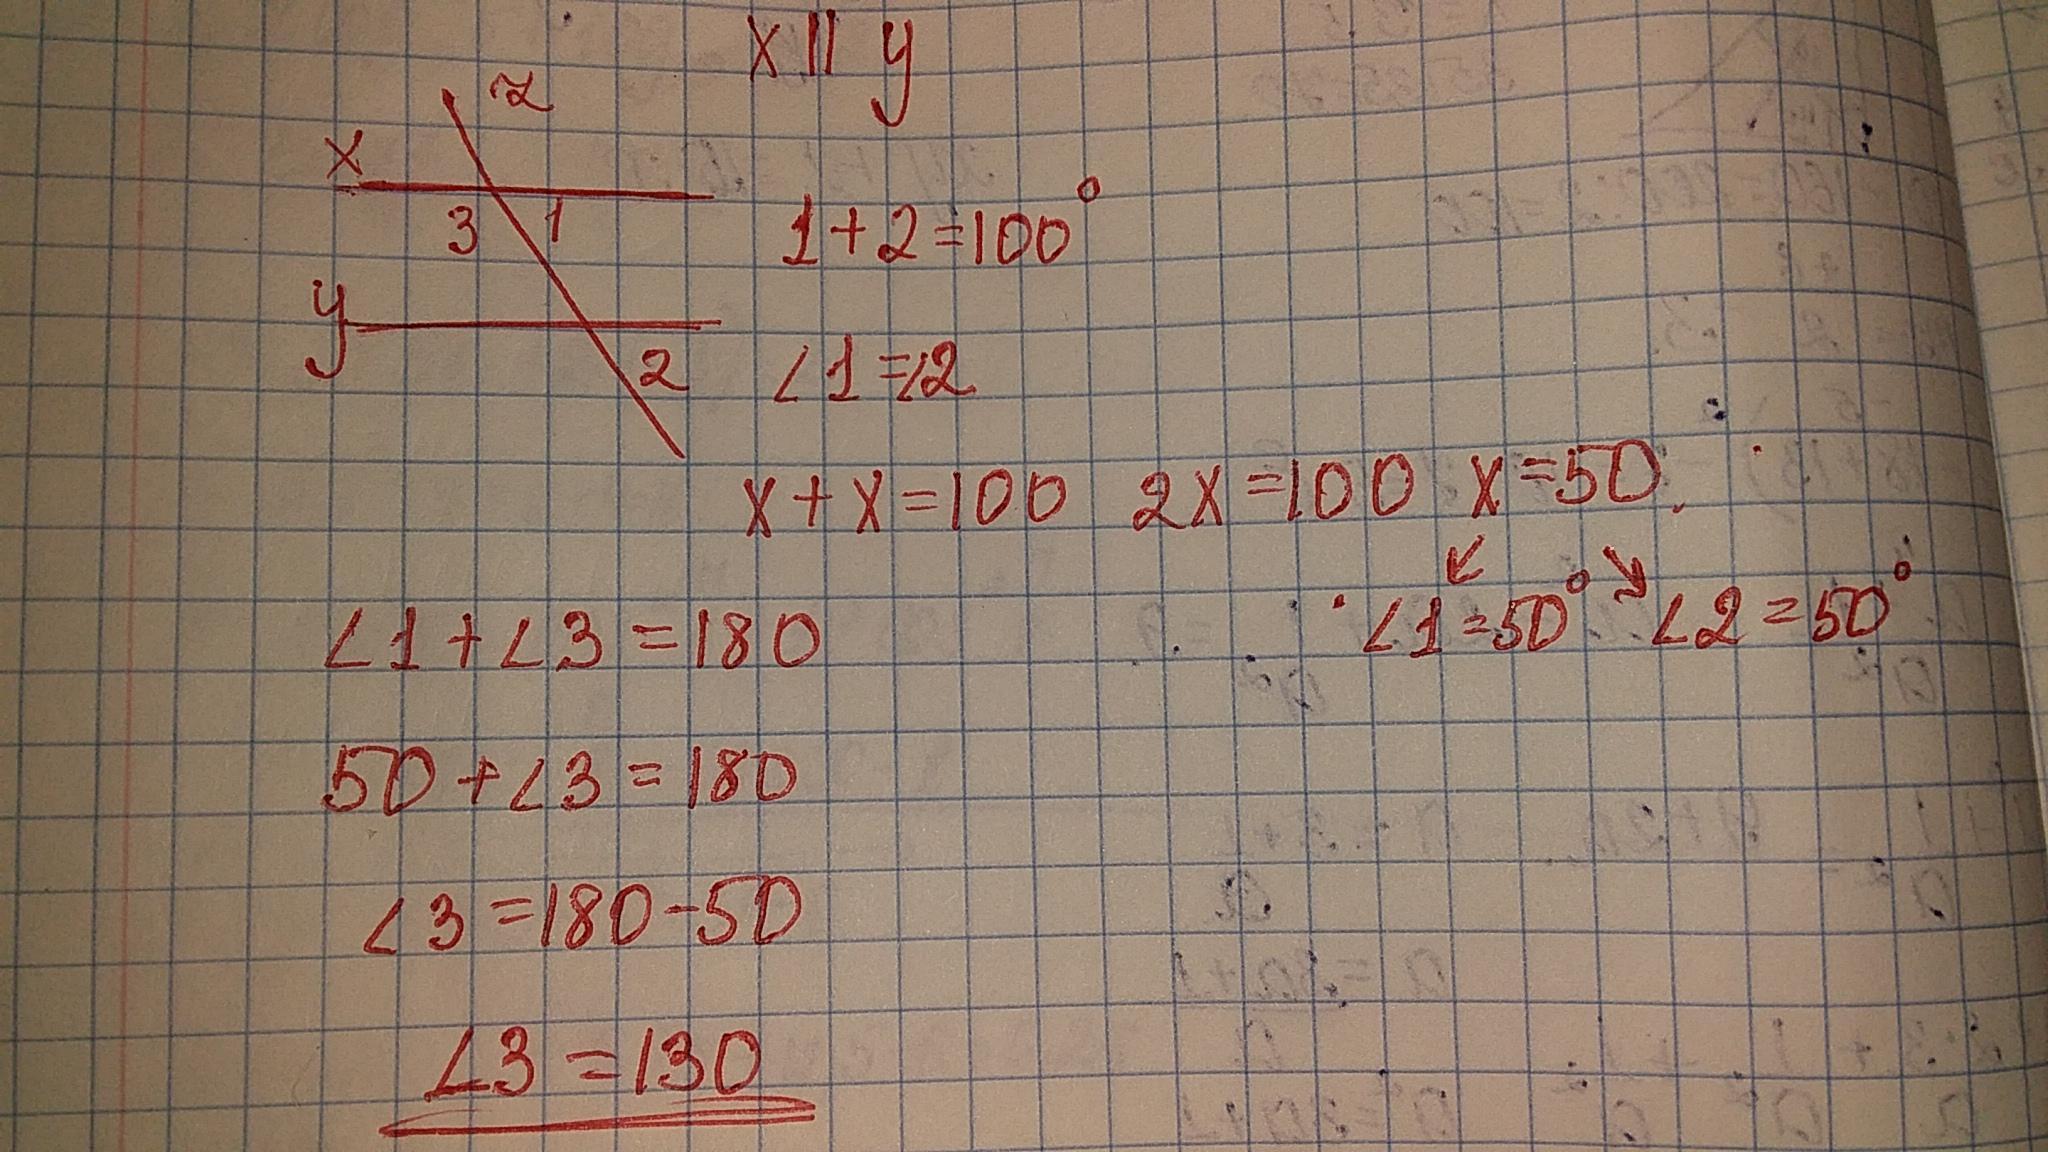 x || y
z
x
3 1
1+2=100°
y
2
∠1=∠2
x+x=100 2x=100 x=50.
∠1=50° ∠2=50°
∠1+∠3=180
50+∠3=180
∠3=180-50
∠3=130